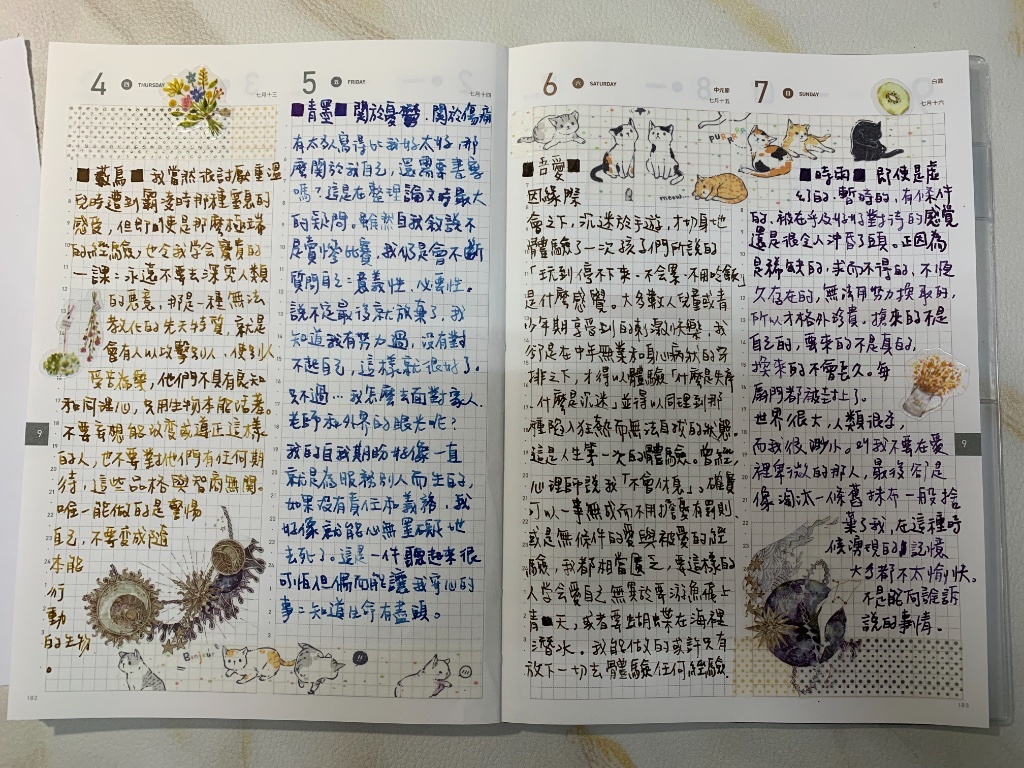 4
四
THURSDAY
七月十三
■藪鳥■ 我當然很討厭重溫
兒時遭到霸凌時那種窒息的
感受,但即便是那麼極端
的經驗,也令我学会寶貴的
一課:永遠不要去深究人類
的惡意,那是一種無法
教化的先天特質,就是
會有人以攻擊别人,使别人
受苦為樂,他們不具有良知
和同理心,只用生物本能活著。
不要妄想能改變或遵正這樣
的人,也不要對他們有任何期
待,這些品格與智商無關。
唯一能做的是警惕
自己,不要变成隨
本能
行
動
的生物
Bonjour
182
5
五
FRIDAY
七月十四
■青墨■ 関於憂鬱,関於傷痛
有太多人寫得比我好太好,那
麼関於我自己,還需要書寫
嗎?這是在整理論文時最大
的疑問。雖然自我敘說不
是賣慘比賽,我仍是會不斷
質問自己:意義性,必要性。
說不定最後就放棄了,我
知道我有努力過,沒有對
不起自己,這樣就很好了。
只不過…我怎麼去面對家人、
老師和外界的眼光呢?
我的自我期盼好像一直
就是為服務別人而生的,
如果没有責任和義務,我
好像就能心無罣礙地
去死了。這是一件聽起來很
可怕但偶而能讓我安心的
事:知道生命有盡頭。
9
6
六
SATURDAY
中元節
七月十五
purrrrr
meow...
吾愛■
因緣際
會之下,沉迷於手遊,才切身地
體驗了一次孩子們所說的
「玩到停不下來、不会累、不用吃飯」
是什麼感覺。大多數人兒童或青
少年期享受到的刺激快樂,我
卻是在中年無業和身心病狀的安
排之下,才得以體驗「什麼是失序
、什麼是沉迷」並得以同理到那
種陷入狂熱而無法自拔的狀態。
這是人生第一次的體驗。曾經,
心理師說我「不會休息」,確實
可以一事無成而不用擔憂有罰則,
或是無條件的愛與被愛的經
驗,我都相當匱乏,要這樣的
人学会愛自己無異於要河魚飛上
青■天,或者要蝴蝶在海裡
潛水。我能做的或許只有
放下一切去體驗任何經驗.
7
日
SUNDAY
白露
七月十六
■時雨■ 即使是虛
幻的、暫時的、有條件
的,被在乎及好好對待的感覺
還是很令人沖昏了頭。正因為
是稀缺的,求而不得的,不恆
久存在的,無法用努力換取的,
所以才格外珍貴。搶來的不是
自己的,要來的不是真的,
換來的不會長久。每
扇門都被封上了。
世界很大,人類很多,
而我很渺小。叫我不要在愛
裡卑微的那人,最後卻是
像淘汰一條舊抹布一般捨
棄了我,在這種時
候湧現的記憶
大多都不太愉快。
不是能向誰訴
說的事情。
9
183